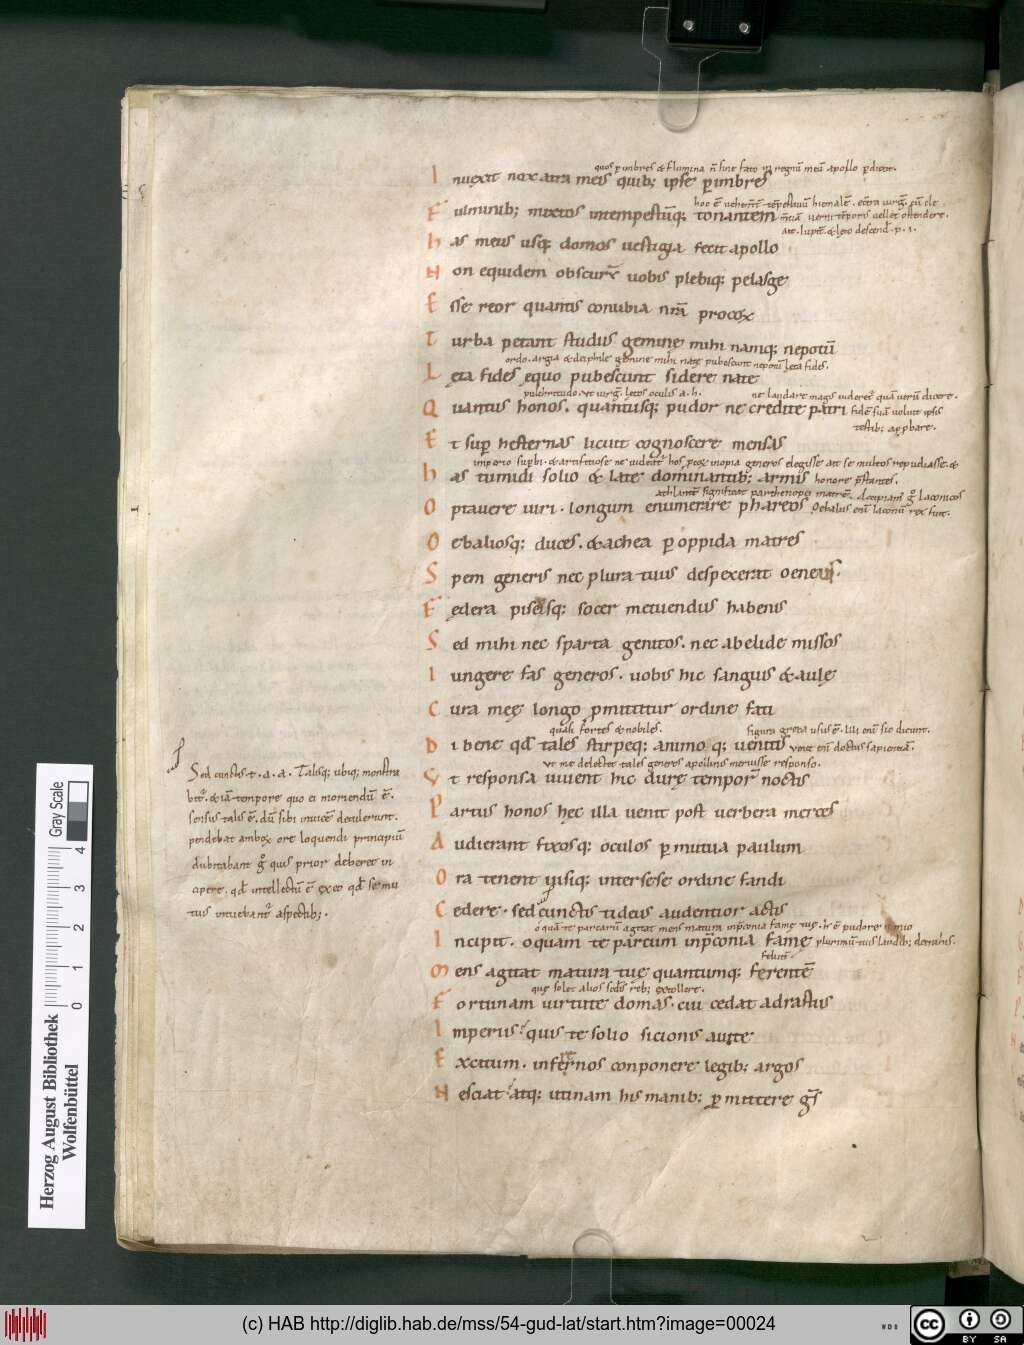 quos p imbres & flumina n̄ sine fato in regnū meū apollo p̄duxit.
I nuexit nox atra meis quib; ipse p imbres
hoc ē uehem̄t tēpestiuū hiemalē.
F ulminib; mixtos intempestiūq; tonantem
uerni tēporis uellet ostendere.
h as meus usq; domos uestigia fecit apollo
N on equidem obscurū uobis plebiq; pelasgę
E sse reor quantis conubia nr̄a procox
T urba petant studiis geminę mihi namq; nepotū
ordo. argia & deiphile geminę mihi natę pubescunt nepotū lęta fides.
L ęta fides ęquo pubescunt sidere natę
pulchritudo. ut uirg̅. lętos oculis a. h.
ne laudare magis uideret᷑ quā uerū dicere.
Q uantus honos. quantusq; pudor ne credite patri
fidē suā uoluit ipsis
testib; app̄bare.
E t sup̄ hesternas licuit cognoscere mensas
h as tumidi solio & late dominantib; armis
honore p̄stantes.
O ptauere uiri. longum enumerare pheręos
Oebalus enī laconū rex fuit.
O ebaliosq; duces. & achea p oppida matres
S pem generis nec plura tuus despexerat oeneus.
F ędera piseisq; socer metuendus habenis
S ed mihi nec sparta genitos. nec ab elide missos
I ungere fas generos. uobis hic sanguis & aulę
C ura meę longo p̄mittitur ordine fati
quali fortes & nobiles.
figura greca usus ē. illi enī sic dicunt.
D i bene qd̄ tales stirpeq; animoq; uenitis
ut me delectet tales generos apollinis meruisse responso.
V t responsa iuuent hic durę tempor̄ noctis
P artus honos hęc illa uenit post uerbera merces
A udierant fixosq; oculos p mutua paulum
O ra tenent uisiq; inter sese ordine fandi
C edere. sed cunctis tideus audentior actis
I ncipit. o quam te parcum in p̄conia famę
plurimū tuis laudib; detrahis.
M ens agitat matura tuę quantumq; ferentē
F ortunam uirtute domas. cui cedat adrastus
I mperiis? quis te solio sicionis auitę
E xcitum. infrenos conponere legib; argos
N esciat? atq; utinam his manib; p̄mittere g̅s
Sed cunctis. t. a. a. Talisq; ubiq; monstra
bit᷑. & iā tempore quo ei moriendū ē.
sensus talis ē. dū sibi inuicē detulerunt.
pendebat ambox ore loquendi principiū
dubitabant g̊ quis prior deberet in
cipere. qd̄ intellectū ē ex eo qd̄ se mu
tuis intuebant᷑ aspectib;.
Gray Scale
0 1 2 3 4
Herzog August Bibliothek
Wolfenbüttel
(c) HAB http://diglib.hab.de/mss/54-gud-lat/start.htm?image=00024
WDB
cc BY SA